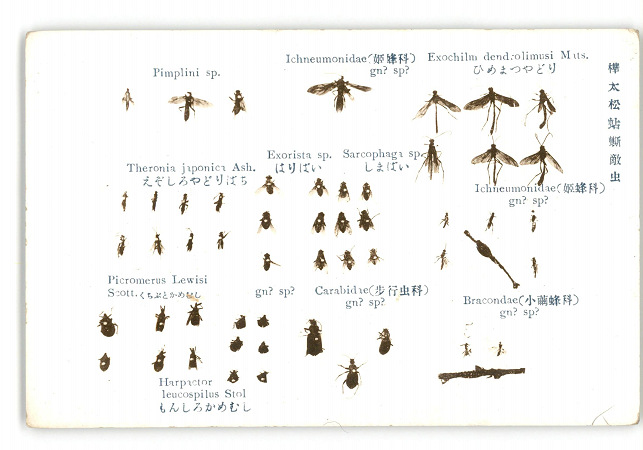 樺太松蛄蟖敵虫
Pimplini sp.
Ichneumonidae(姫蜂科)
gn? sp?
Exochilm dendrolimusi Mats.
ひめまつやどり
Theronia japonica Ash.
えぞしろやどりばち
Exorista sp.
はりばい
Sarcophaga sp.
しまばい
Ichneumonidae(姫蜂科)
gn? sp?
Picromerus Lewisi
Scott. くちぶとかめむし
gn? sp?
Carabidae(歩行虫科)
gn? sp?
Bracondae(小繭蜂科)
gn? sp?
Harpactor
leucospilus Stol
もんしろかめむし